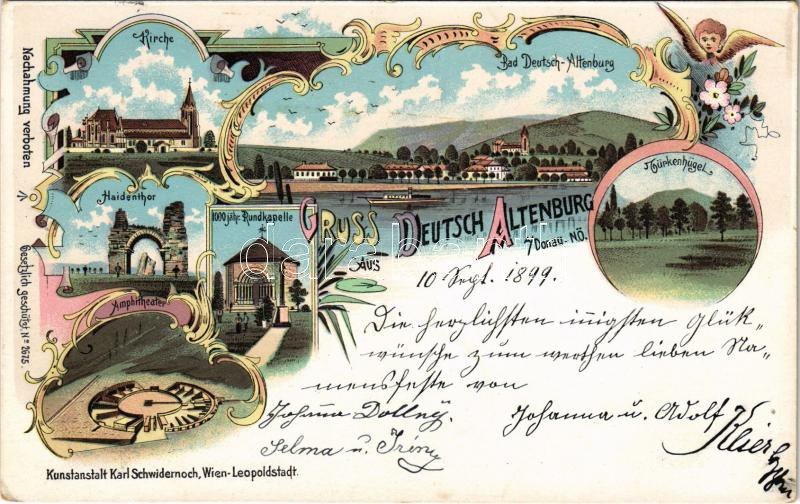 Kirche
Bad Deutsch-Altenburg
Nachahmung verboten
Gesetzlich geschützt, No 2675.
Haidenthor
1000 jähr. Rundkapelle
Türkenhügel
Amphitheater
GRUSS
AUS
DEUTSCH ALTENBURG
a/ Donau-NÖ.
10 Sept. 1899.
Die herzlichsten innigsten Glück-
wünsche zum werthen lieben Na-
mensfeste von
Johanna u. Adolf
Klier
Selma u. Irény
Kunstanstalt Karl Schwidernoch, Wien-Leopoldstadt.